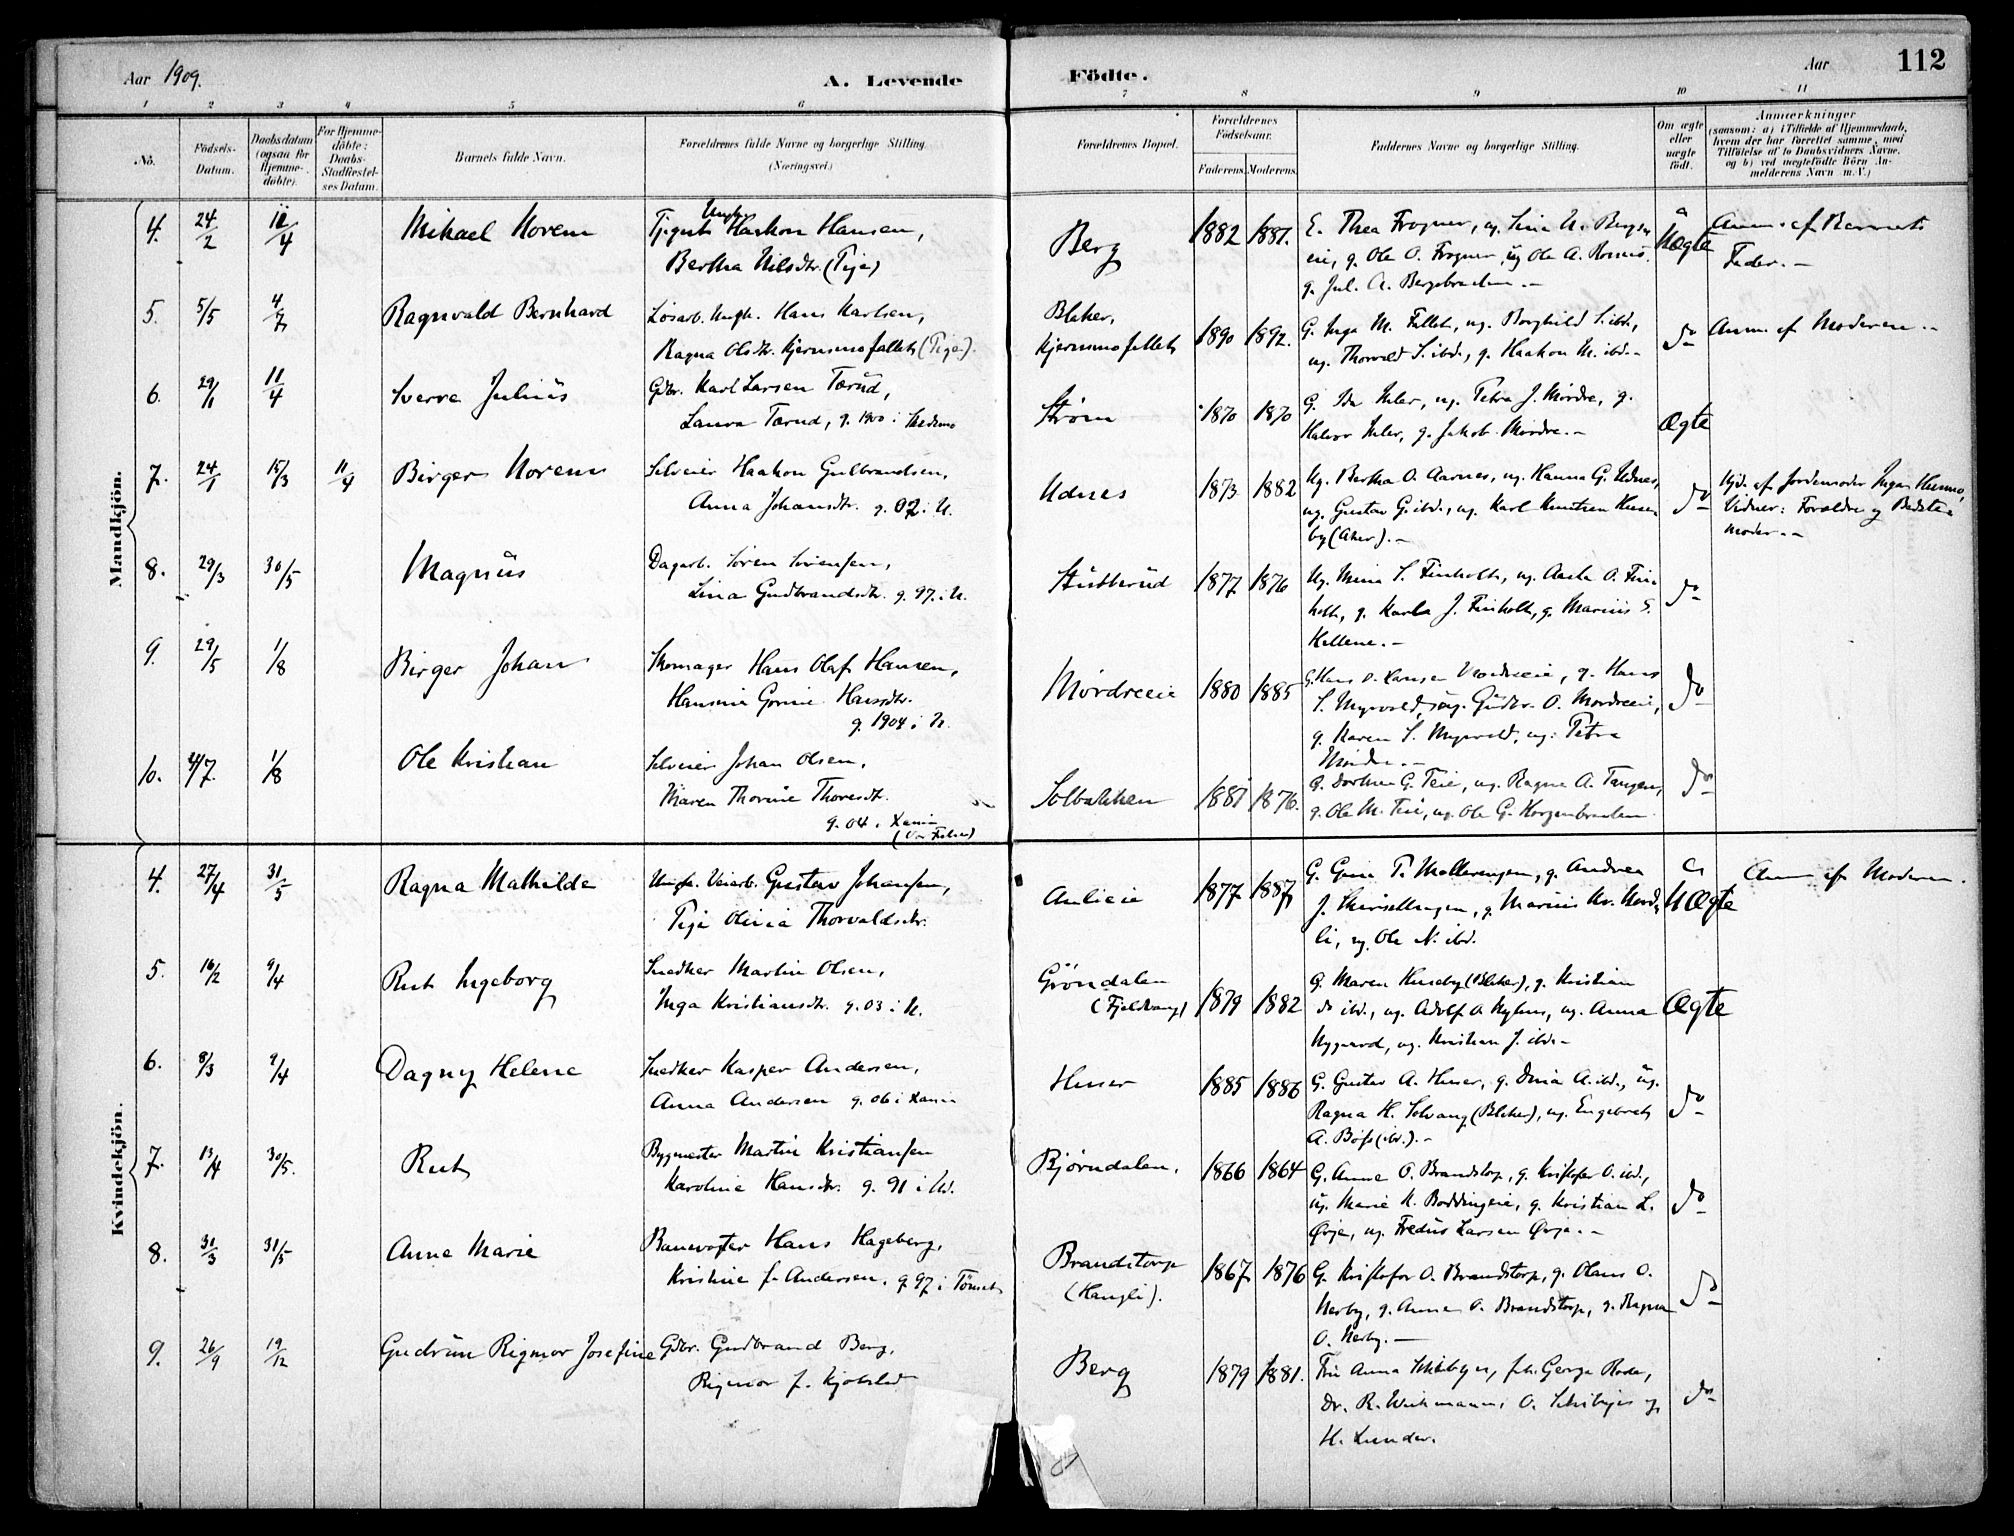 Aar 1909.
A. Levende Födte.
Aar
112
1 2 3 4 5 6 7 8 9 10 11
No.
Födsels-Datum.
Daabsdatum (ogsaa for Hjemme-döbte).
For Hjemme-döbte: Daabs-Stadfæstel-ses Datum.
Barnets fulde Navn.
Forældrenes fulde Navne og borgerlige Stilling (Næringsvei.)
Forældrenes Bopæl.
Forældrenes Födselsaar.
Faderens. Moderens.
Faddernes Navne og borgerlige Stilling.
Om ægte eller uægte født.
Anmærkninger
(saasom: a) i Tilfælde af Hjemmedaab,
hvem der har forrettet samme, med
Tilföielse af to Daabsvidners Navne.
og b) ved uægtefödte Börn An-
melderens Navn m. V.)
Mandkjön.
4. 24/2 12/4 Mikael Norem
Tjgut Ungk. Haakon Hansen,
Bertha Nilsdtr. (Pige)
Berg 1882 1881.
E. Thea Frogner, ug.
g. Ole O. Frogner, ug Ole A.
g. Jul. A.
Uægte
Anm. af Barnets
Fader. -
5. 5/5 4/7 Ragnvald Bernhard
Løsarb. Ungk. Hans Karlsen,
Ragna Olsdtr. Kjernmofallet (Pige).
Blaker,
Kjernmofallet 1890 1892.
G. Inga M. Fallet, ug. Borghild S. ibd.,
ug. Thorvald S. ibd., g. Haakon M. ibd. -
do
Anm. af Moderen. -
6. 29/1 11/4 Sverre Julius
Gdbr. Karl Larsen Tærud,
Laura Tærud, g. 1900 i Skedsmo
Strøm 1870 1870
G. Ida Ihler, ug. Petra J. Mordre, g.
Halvor Ihler, g. Jakob Mordre. -
Ægte
7. 24/1 15/3 11/4 Birger Norem
Selveier Haakon Gulbrandsen,
Anna Johansdtr. g. 02 i N.
Udnes 1873 1882
Ug. Bertha O. Aarnes, ug. Hanna G. Udnes,
ug. Gustav G. ibd., ug. Karl Knutsen Huse-
by (Aker). -
do
Hjd. af Jordemoder Inga
Vidner: Forældre og Bedste-
moder. -
8. 29/3 30/5 Magnus
Dagarb. Søren Sørensen,
Lina Gudbrandsdtr. g. 97 i N.
Stutterud 1877 1876
Ug. Mina S. Finholt, ug. Aasta O. Fin-
holt, g. Karla J. Finholt, g. Marius S.
Kellene. -
do
9. 29/5 1/8 Birger Johan
Skomager Hans Olaf Hansen,
Hansine Gorine Hansdtr.
g. 1904 i N.
Mordreeie 1880 1885
G. Hans O. Hansen Mordreeie, g. Hans
S. Myrvold, ug. Gudbr. O. Mordreeie,
g. Karen S. Myrvold, ug. Petra
do
10. 4/7. 1/8 Ole Kristian
Selveier Johan Olsen,
Maren Thorine Thoresdtr.
g. 04 i Xania
(Vor Frelser)
Solbakken 1881 1876.
G. Dorthea G. Teie, ug. Ragna A. Tangen,
g. Ole M. Teie, ug. Ole G.
do
Kvindekjön.
4. 27/4 31/5 Ragna Mathilde
Ungk. Veiarb. Gustav Johansen,
Pige Olivia Thorvaldsdtr.
Aulieie 1877 1887
G. Gina P. Mollerengen, g. Andrea
J. g. Marius Kr. Nord-
li, ug. Ole N. ibd.
Uægte
Anm. af Moderen.
5. 16/2 9/4 Rut Ingeborg
Snedker Martin Olsen,
Inga Kristiansdtr. g. 03 i N.
Grøndalen
(Fjeldvang) 1879 1882
G. Maren Huseby (Blaker), g. Kristian
do ibd., ug. Adolf O. ug. Anna
Nygaard, ug. Kristian J. ibd. -
Ægte
6. 8/3 9/4 Dagny Helene
Snedker Kasper Andersen,
Anna Andersen g. 06 i Xania
Huser 1885 1886
G. Gustav A. Huser, g. A. ibd., ug.
Ragna H. Solvang (Blaker), ug. Engebret
A. Bøhs (ibd.). -
do
7. 13/4 30/5. Rut
Bygmester Martin Kristiansen
Karoline Hansdtr. g. 91 i Ud.
Bjørndalen. 1866 1864
G. Anne O. Brandstorp, g. Kristofer O. ibd.,
ug. Marie K. Boddingeie, g. Kristian L.
Øvje, ug. Fredus Larsen Øvje. -
do
8. 31/3 31/5 Anne Marie
Banevogter Hans Hageberg,
Kristine f. Andersen. g. 97 i Tönset
Brandstorp
(Haugli). 1867 1876
G. Kristofer O. Brandstorp, g. Olaus O.
Nerby, g. Anne O. Brandstorp, g. Ragna
O. Nerby. -
do
9. 26/9 19/12 Gudrun Rigmor Josefine
Gdbr. Gudbrand Berg,
Rigmor f. Kjølstad
Berg 1879 1881.
Fru Anna Schibye, frk. George Rode,
Dr. R. Wichmann, O. Schibye og
H. Lunder.
do